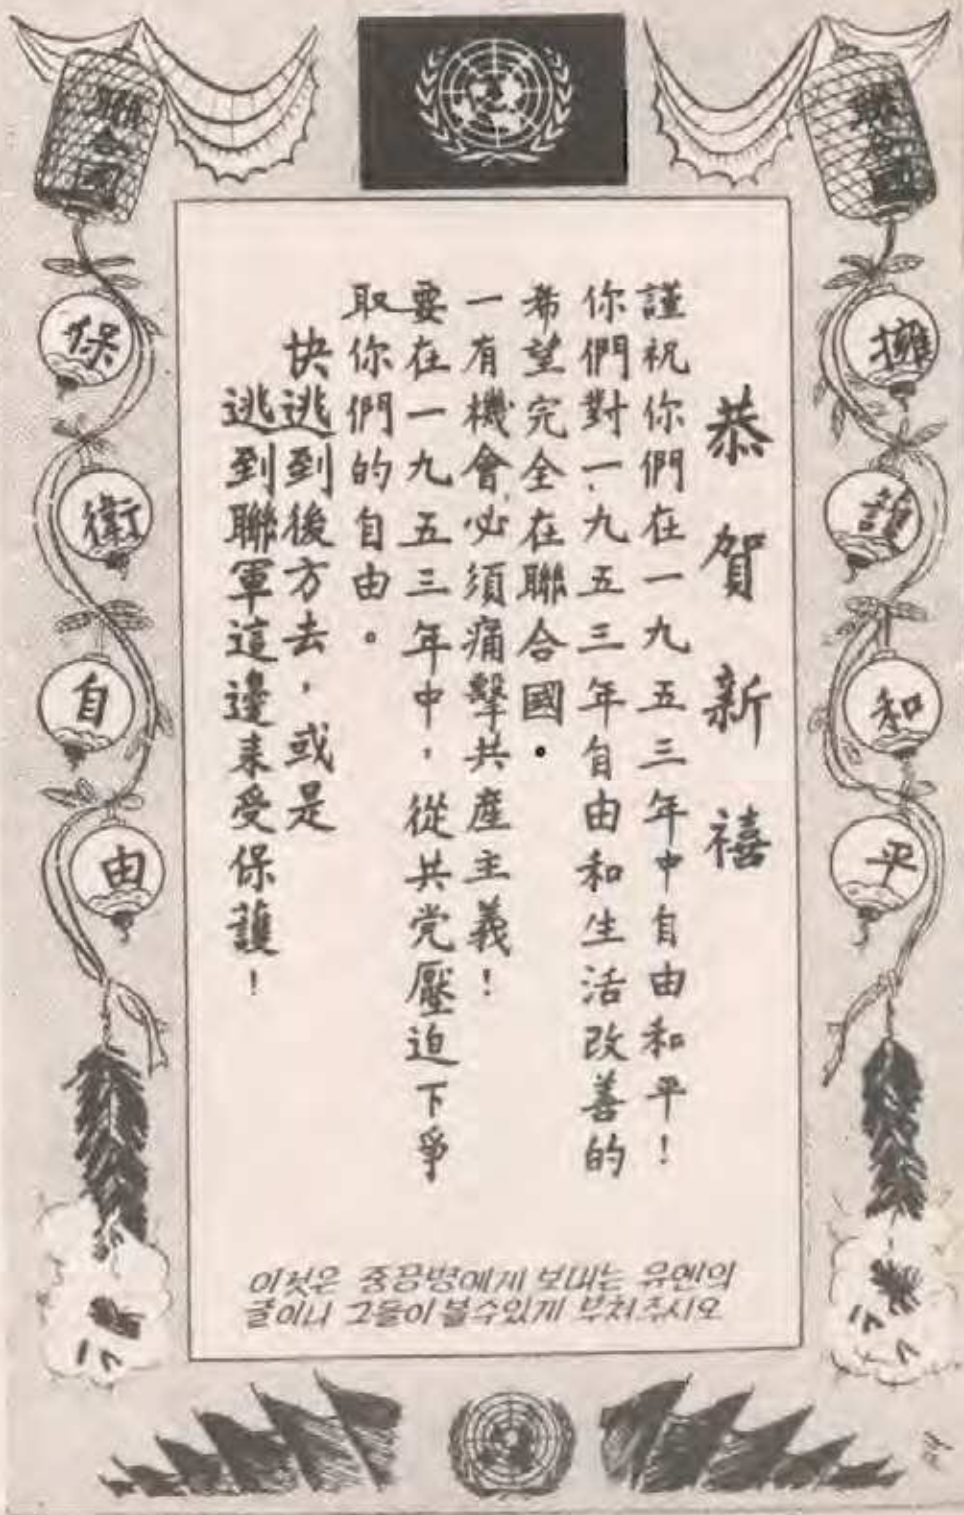 聯合國
聯合國
擁護和平
保衛自由
恭賀新禧
謹祝你們在一九五三年中自由和平！
你們對一九五三年自由和生活改善的
希望完全在聯合國．
一有機會，必須痛擊共產主義！
要在一九五三年中，從共党壓迫下爭
取你們的自由。
快逃到後方去，或是
逃到聯軍這邊来受保護！
이것은 중공병에게 보내는 유엔의
글이니 그들이 볼수있게 부처주시오